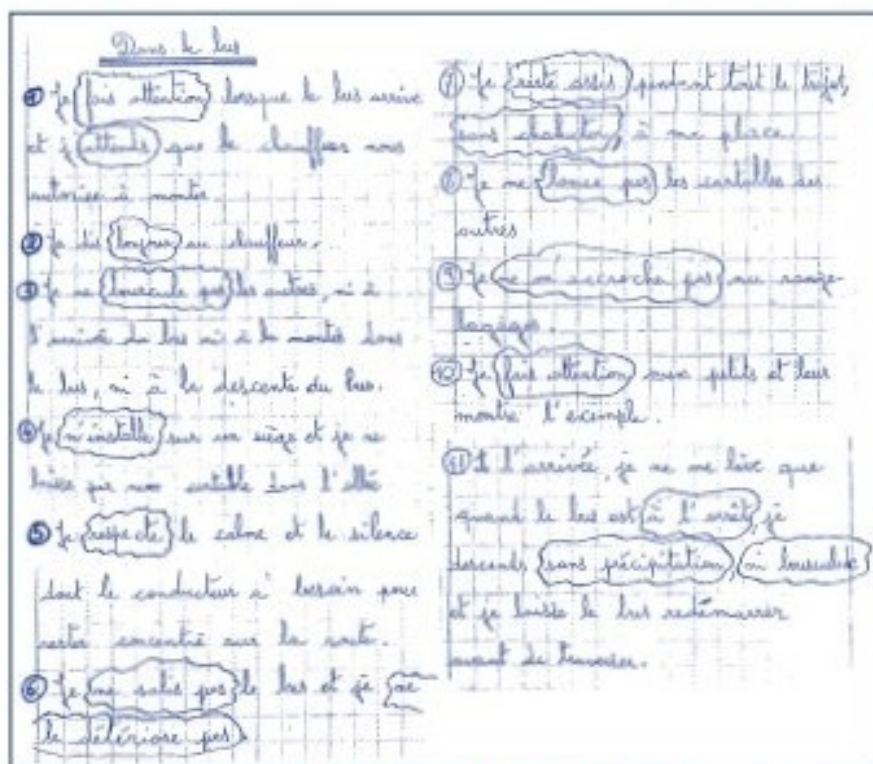 Dans le bus
① Je fais attention lorsque le bus arrive
et j'attends que le chauffeur nous
autorise à monter.
② Je dis bonjour au chauffeur.
③ Je ne bouscule pas les autres, ni à
l'arrivée du bus ni à la montée dans
le bus, ni à la descente du bus.
④ Je m'installe sur un siège et je ne
laisse pas mon cartable dans l'allée
⑤ Je respecte le calme et le silence
dont le conducteur a besoin pour
rester concentré sur la route.
⑥ Je ne salis pas le bus et je ne
le détériore pas
⑦ Je reste assis pendant tout le trajet,
sans chahuter, à ma place
⑧ Je ne lance pas les cartables des
autres
⑨ Je ne m'accroche pas au range
bagages.
⑩ Je fais attention aux petits et leur
montre l'exemple.
⑪ A l'arrivée, je ne me lève que
quand le bus est à l'arrêt, je
descends sans précipitation, ni bousculade
et je laisse le bus redémarrer
avant de traverser.